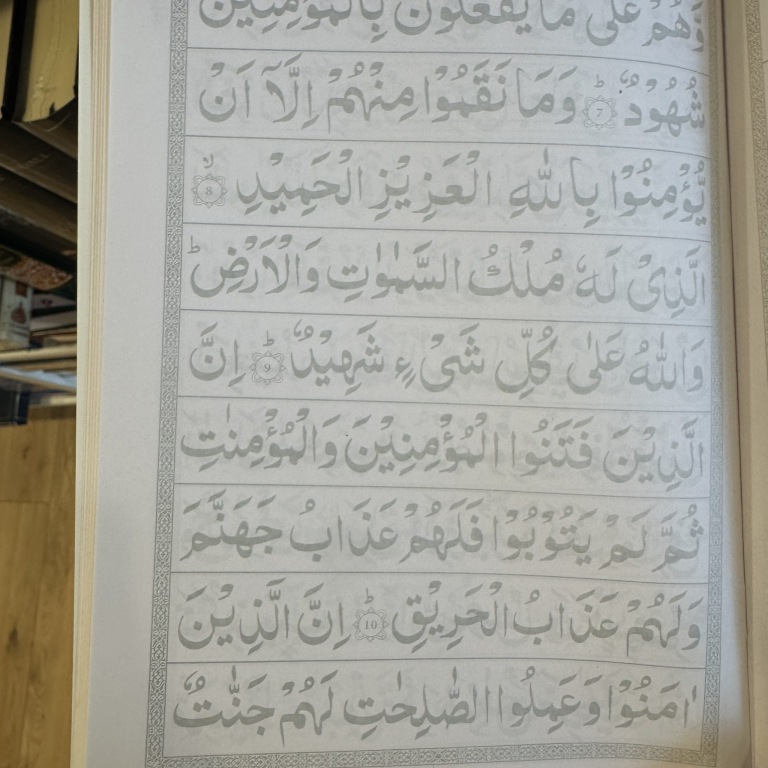 وَّهُمۡ عَلٰى مَا يَفۡعَلُوۡنَ بِالۡمُؤۡمِنِيۡنَ
شُهُوۡدٌ ؕ‏ 7 وَمَا نَقَمُوۡا مِنۡهُمۡ اِلَّاۤ اَنۡ
يُّؤۡمِنُوۡا بِاللّٰهِ الۡعَزِيۡزِ الۡحَمِيۡدِ ۙ‏ 8
الَّذِىۡ لَهٗ مُلۡكُ السَّمٰوٰتِ وَالۡاَرۡضِ ؕ
وَاللّٰهُ عَلٰى كُلِّ شَىۡءٍ شَهِيۡدٌ ؕ‏ 9 اِنَّ
الَّذِيۡنَ فَتَنُوا الۡمُؤۡمِنِيۡنَ وَالۡمُؤۡمِنٰتِ
ثُمَّ لَمۡ يَتُوۡبُوۡا فَلَهُمۡ عَذَابُ جَهَنَّمَ
وَلَهُمۡ عَذَابُ الۡحَرِيۡقِ ؕ‏ 10 اِنَّ الَّذِيۡنَ
اٰمَنُوۡا وَعَمِلُوا الصّٰلِحٰتِ لَهُمۡ جَنّٰتٌ